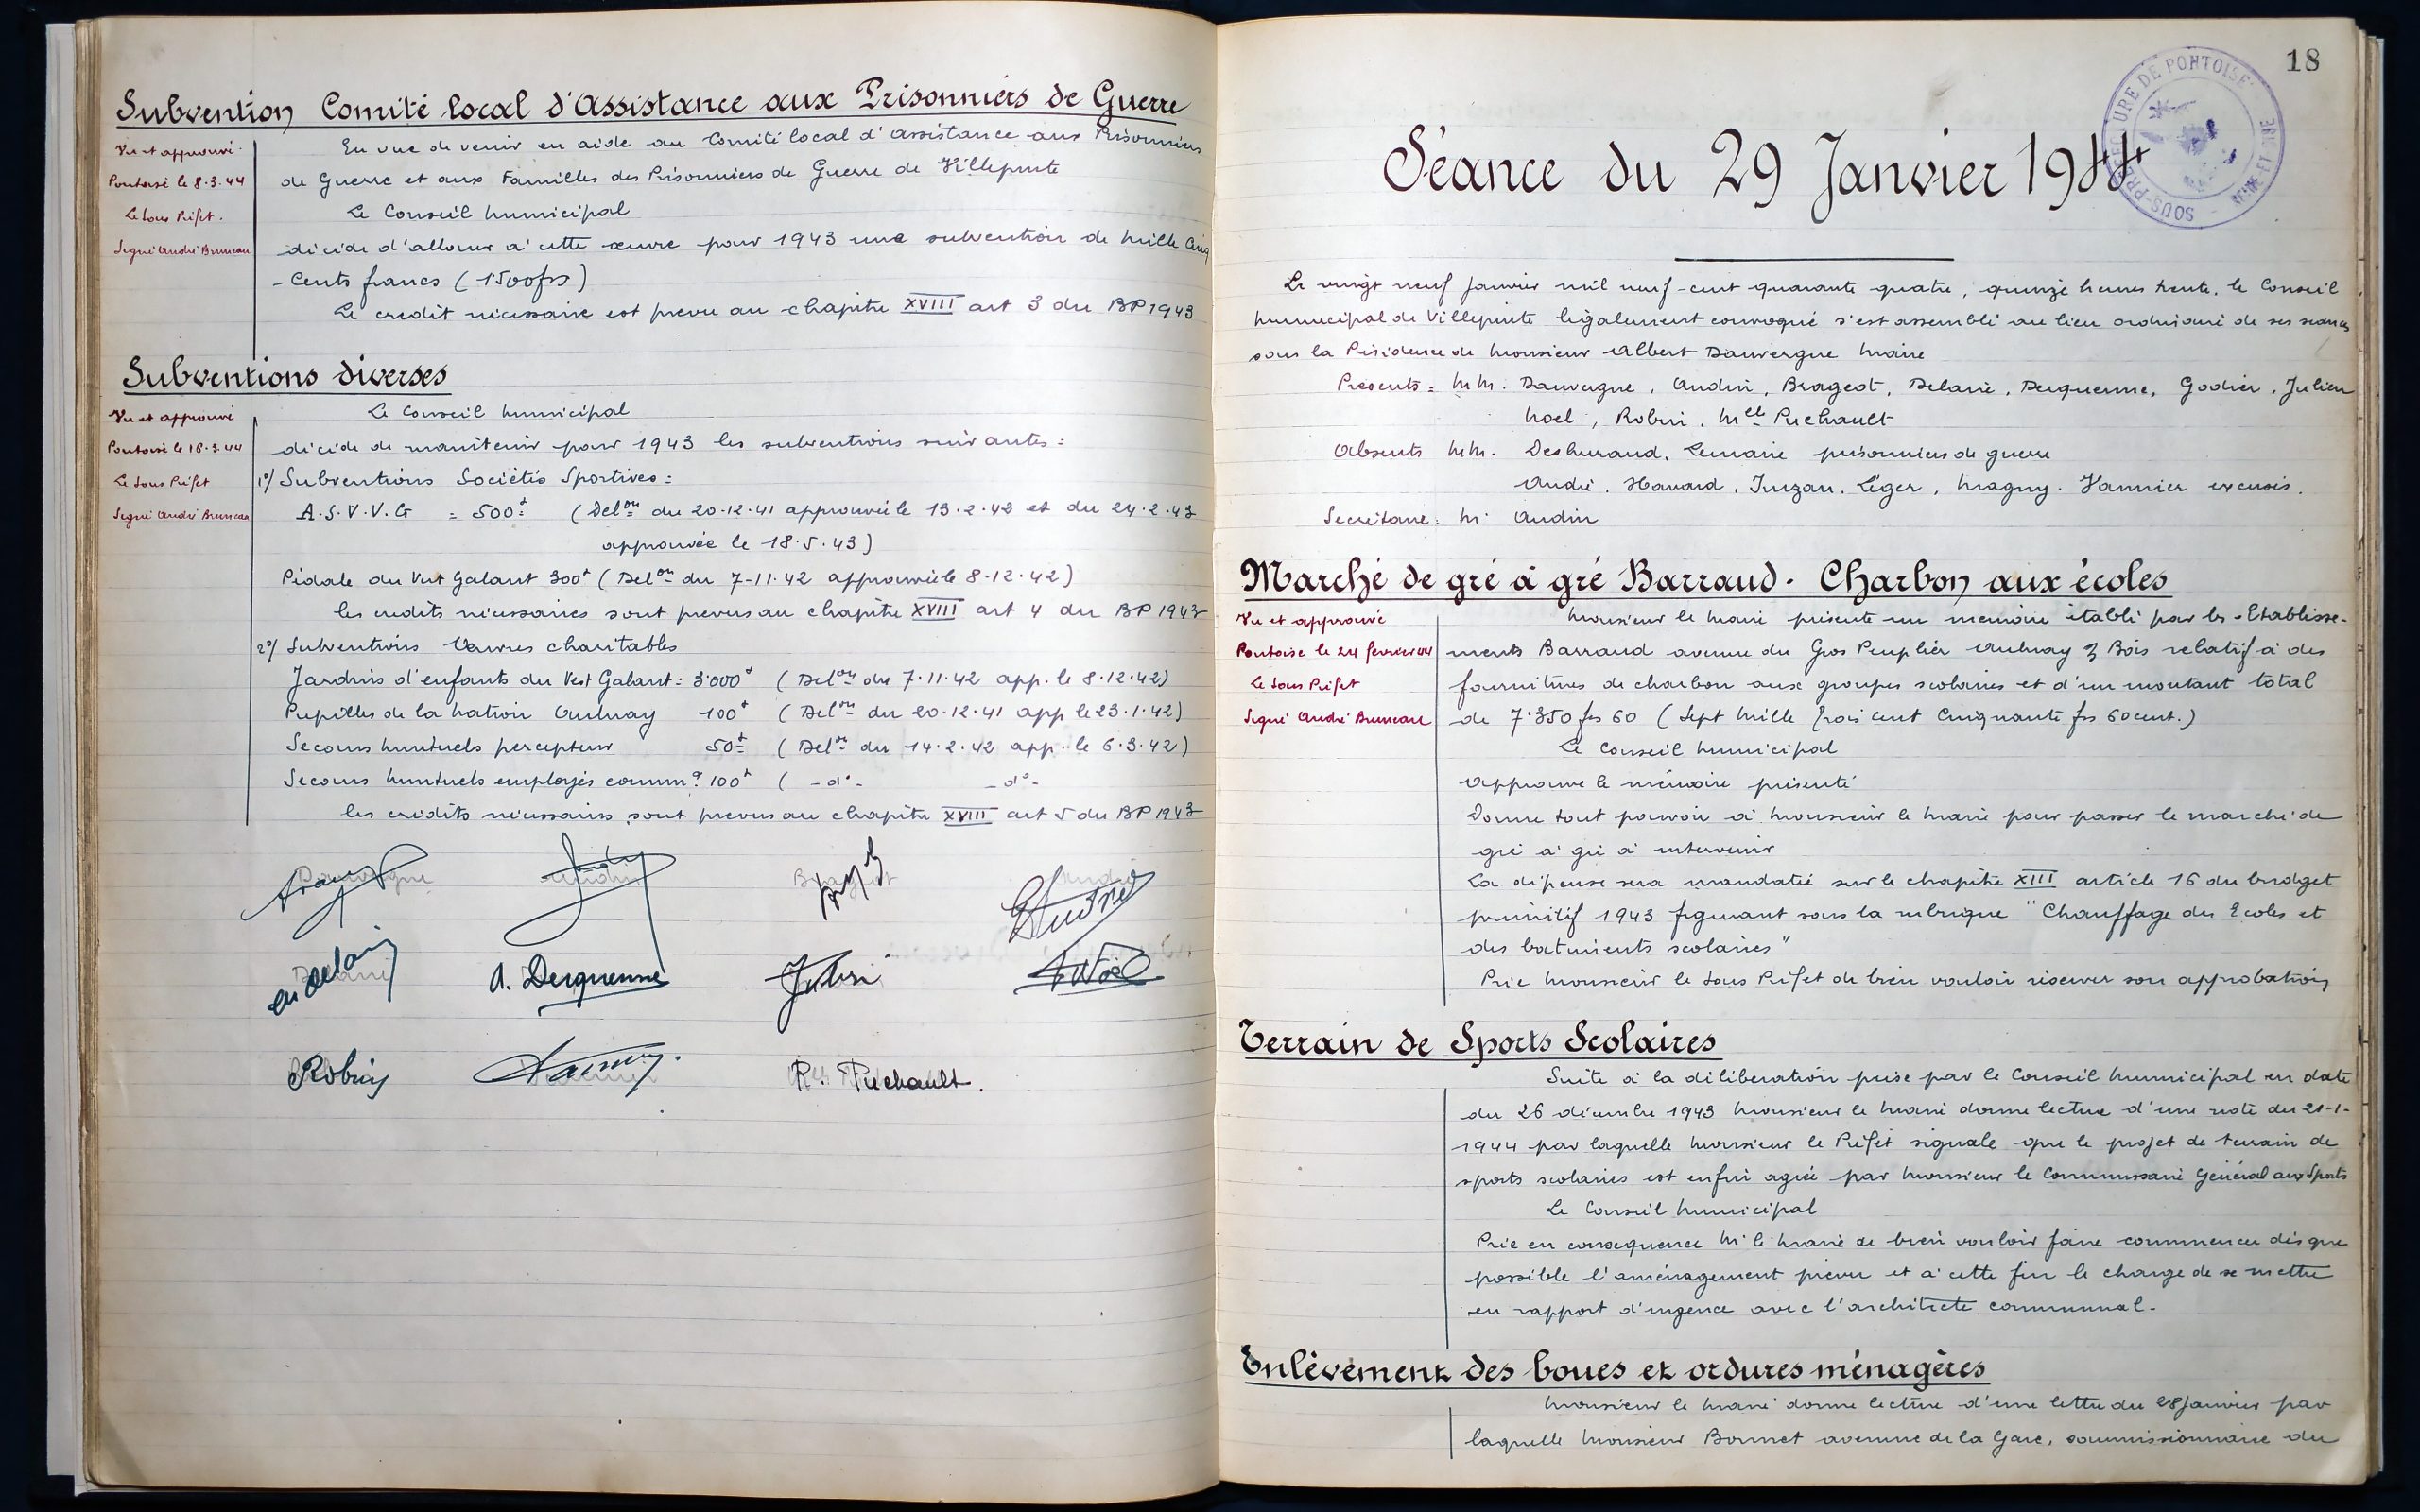 Subvention Comité local d'Assistance aux Prisonniers de Guerre
En vue de venir en aide au Comité local d'assistance aux Prisonniers
Vu et approuvé
Pontoise le 8.3.44
Le Sous Préfet.
Signé André Bruneau
de Guerre et aux Familles des Prisonniers de Guerre de Villepinte
Le Conseil Municipal
décide d'allouer à cette œuvre pour 1943 une subvention de Mille Cinq
-Cents francs (1500frs)
Le crédit nécessaire est prévu au chapitre XVIII art 3 du BP 1943
Subventions diverses
Vu et approuvé
Pontoise le 18.3.44
Le Sous Préfet
Signé André Bruneau
Le Conseil Municipal
décide de maintenir pour 1943 les subventions suivantes :
1°/ Subventions Sociétés Sportives :
A.S.V.V.G = 500f (Delon du 20.12.41 approuvée le 13.2.42 et du 24.2.43
approuvée le 18.5.43)
Pédale du Vert Galant 300f (Delon du 7-11.42 approuvée le 8.12.42)
les crédits nécessaires sont prévus au chapitre XVIII art 4 du BP 1943
2°/ Subventions Œuvres charitables
Jardins d'enfants du Vert Galant : 3.000f (Delon du 7.11.42 app. le 8.12.42)
Pupilles de la Nation Aulnay 100f (Delon du 20.12.41 app le 23.1.42)
Secours Mutuels percepteur 50f (Delon du 14.2.42 app. le 6.3.42)
Secours Mutuels employés commx 100f ( -d°- -d°-
les crédits nécessaires sont prévus au chapitre XVIII art 5 du BP 1943
Dauvergne Audin Brageot André
Delarié A. Derquenne Julien Noël
Robin Vannier R. Puchault.
18
SOUS-PRÉFECTURE DE PONTOISE
SEINE-ET-OISE
Séance du 29 Janvier 1944
Le vingt neuf Janvier mil neuf-cent quarante quatre, quinze heures trente, le Conseil
Municipal de Villepinte légalement convoqué s'est assemblé au lieu ordinaire de ses séances
sous la Présidence de Monsieur Albert Dauvergne Maire
Présents : MM. Dauvergne, Audin, Brageot, Delarié, Derquenne, Godier, Julien
Noel, Robin, Mlle Puchault
Absents MM. Lemaire prisonniers de guerre
André, Havard, Léger, Magny. Vannier excusés.
Secrétaire : M. Audin
Marché de gré à gré Barraud. Charbon aux écoles
Vu et approuvé
Pontoise le 24 février 44
Le Sous Préfet
Signé André Bruneau
Monsieur le Maire présente un mémoire établi par les Etablisse-
ments Barraud avenue du Gros Peuplier Aulnay s/ Bois relatif à des
fournitures de charbon aux groupes scolaires et d'un montant total
de 7.350 frs 60 (Sept Mille trois cent Cinquante frs 60 cent.)
Le Conseil Municipal
Approuve le mémoire présenté
Donne tout pouvoir à Monsieur le Maire pour passer le marché de
gré à gré à intervenir
La dépense sera mandatée sur le chapitre XIII article 16 du budget
primitif 1943 figurant sous la rubrique "Chauffage des Ecoles et
des batiments scolaires"
Prie Monsieur le Sous Préfet de bien vouloir réserver son approbation
Terrain de Sports Scolaires
Suite à la délibération prise par le Conseil Municipal en date
du 26 décembre 1943 Monsieur le Maire donne lecture d'une note du 21-1-
1944 par laquelle Monsieur le Préfet signale que le projet de terrain de
sports scolaires est enfin agréé par Monsieur le Commissaire Général aux Sports
Le Conseil Municipal
Prie en conséquence M. le Maire de bien vouloir faire commencer dès que
possible l'aménagement prévu et à cette fin le charge de se mettre
en rapport d'urgence avec l'architecte communal.
Enlèvement des boues et ordures ménagères
Monsieur le Maire donne lecture d'une lettre du 28 Janvier par
laquelle Monsieur Bonnet avenue de la Gare, soumissionnaire du